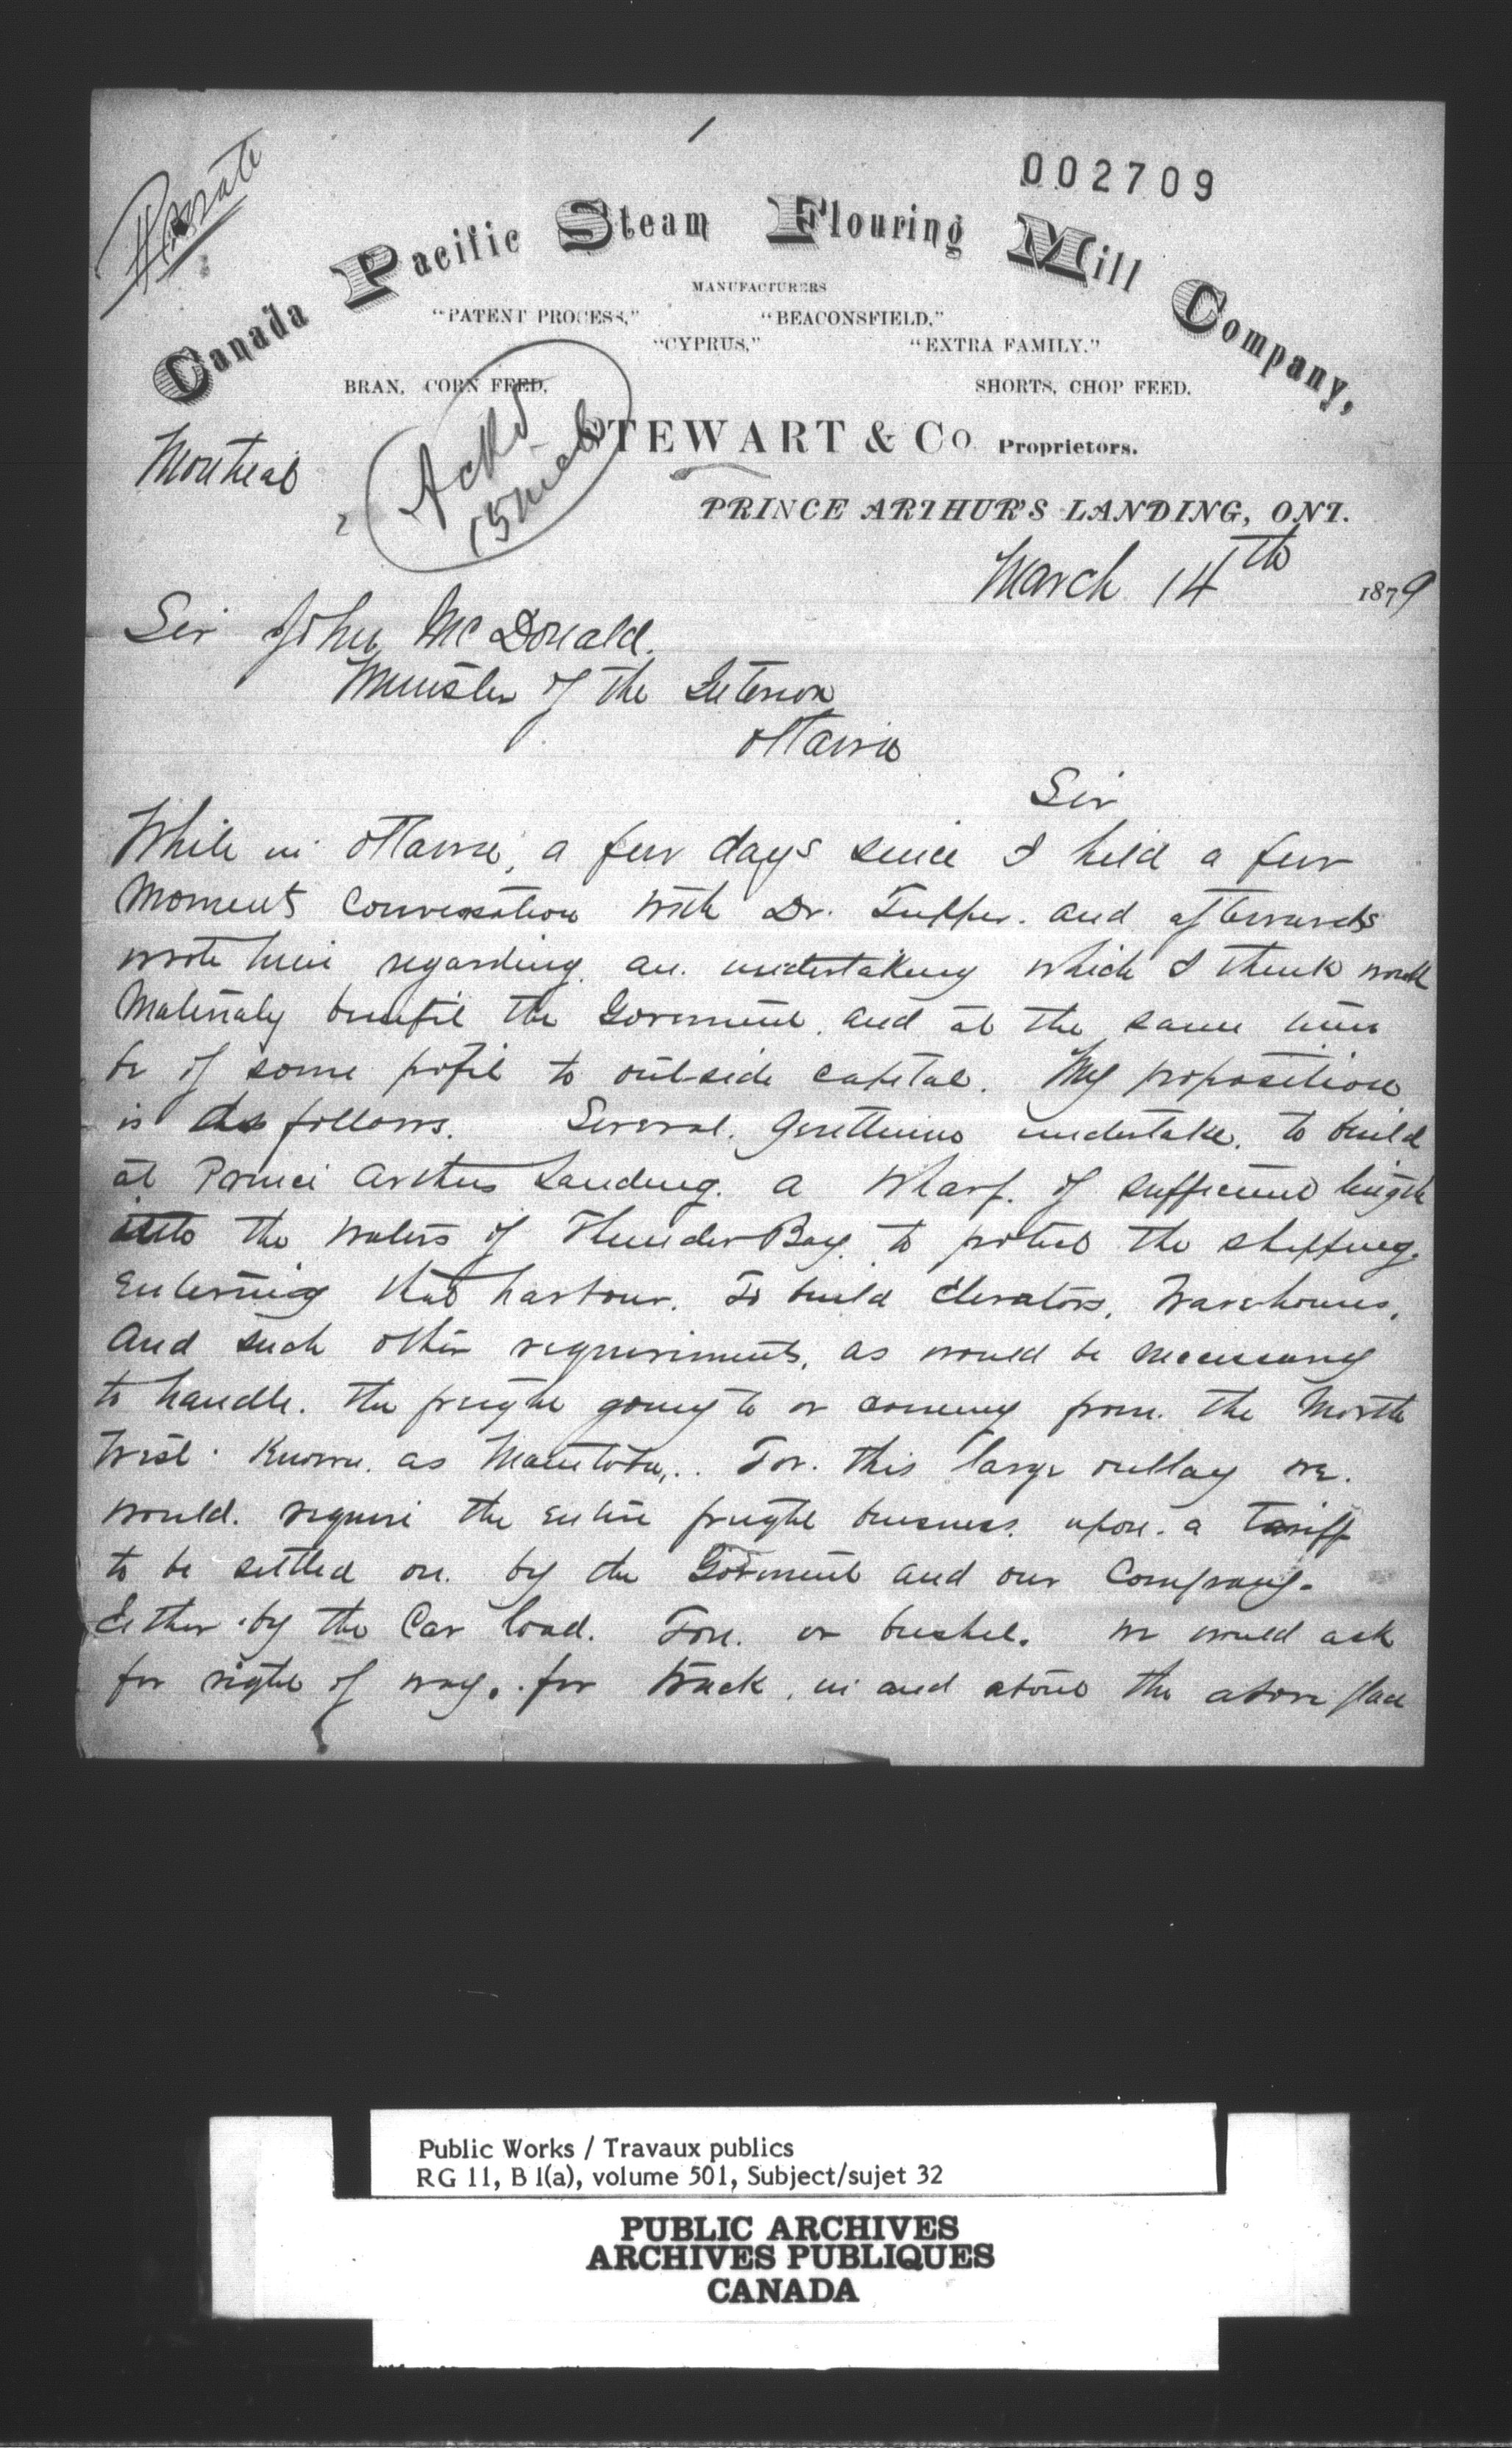 1
002709
Private
Canada Pacific Steam Flouring Mill Company,
MANUFACTURERS
"PATENT PROCESS," "BEACONSFIELD,"
"CYPRUS," "EXTRA FAMILY."
BRAN, CORN FEED, SHORTS, CHOP FEED.
STEWART & Co. Proprietors.
Montreal
Ackd
15 Mch
PRINCE ARTHUR'S LANDING, ONT.
March 14th 1879
Sir John McDonald.
Minister of the Interior
Ottawa
Sir
While in Ottawa, a few days since I held a few
Moments Conversation with Dr. Tupper. and afterwards
wrote him regarding an. undertaking which I think would
Materialy benefit the Goverment. and at the same time
be of some profit to outside capital. My proposition
is as follows. Several. Gentlemen undertake. to build
at Prince Arthurs Landing. a Wharf. of sufficient length
into the waters of Thunder Bay. to protect the shipping.
Entering that harbour. To build Elevators, Warehouses,
And such other requirements, as would be necessary
to handle. the freight going to or coming from. the North
West. Known. as Manitoba,.. For. this large outlay we.
would. require the entire freight business. upon. a tariff
to be settled on. by the Goverment and our Company.
Either by the Car load. Ton. or bushel. We would ask
for right of way. for track, in and about the above place
Public Works / Travaux publics
RG 11, B 1(a), volume 501, Subject/sujet 32
PUBLIC ARCHIVES
ARCHIVES PUBLIQUES
CANADA